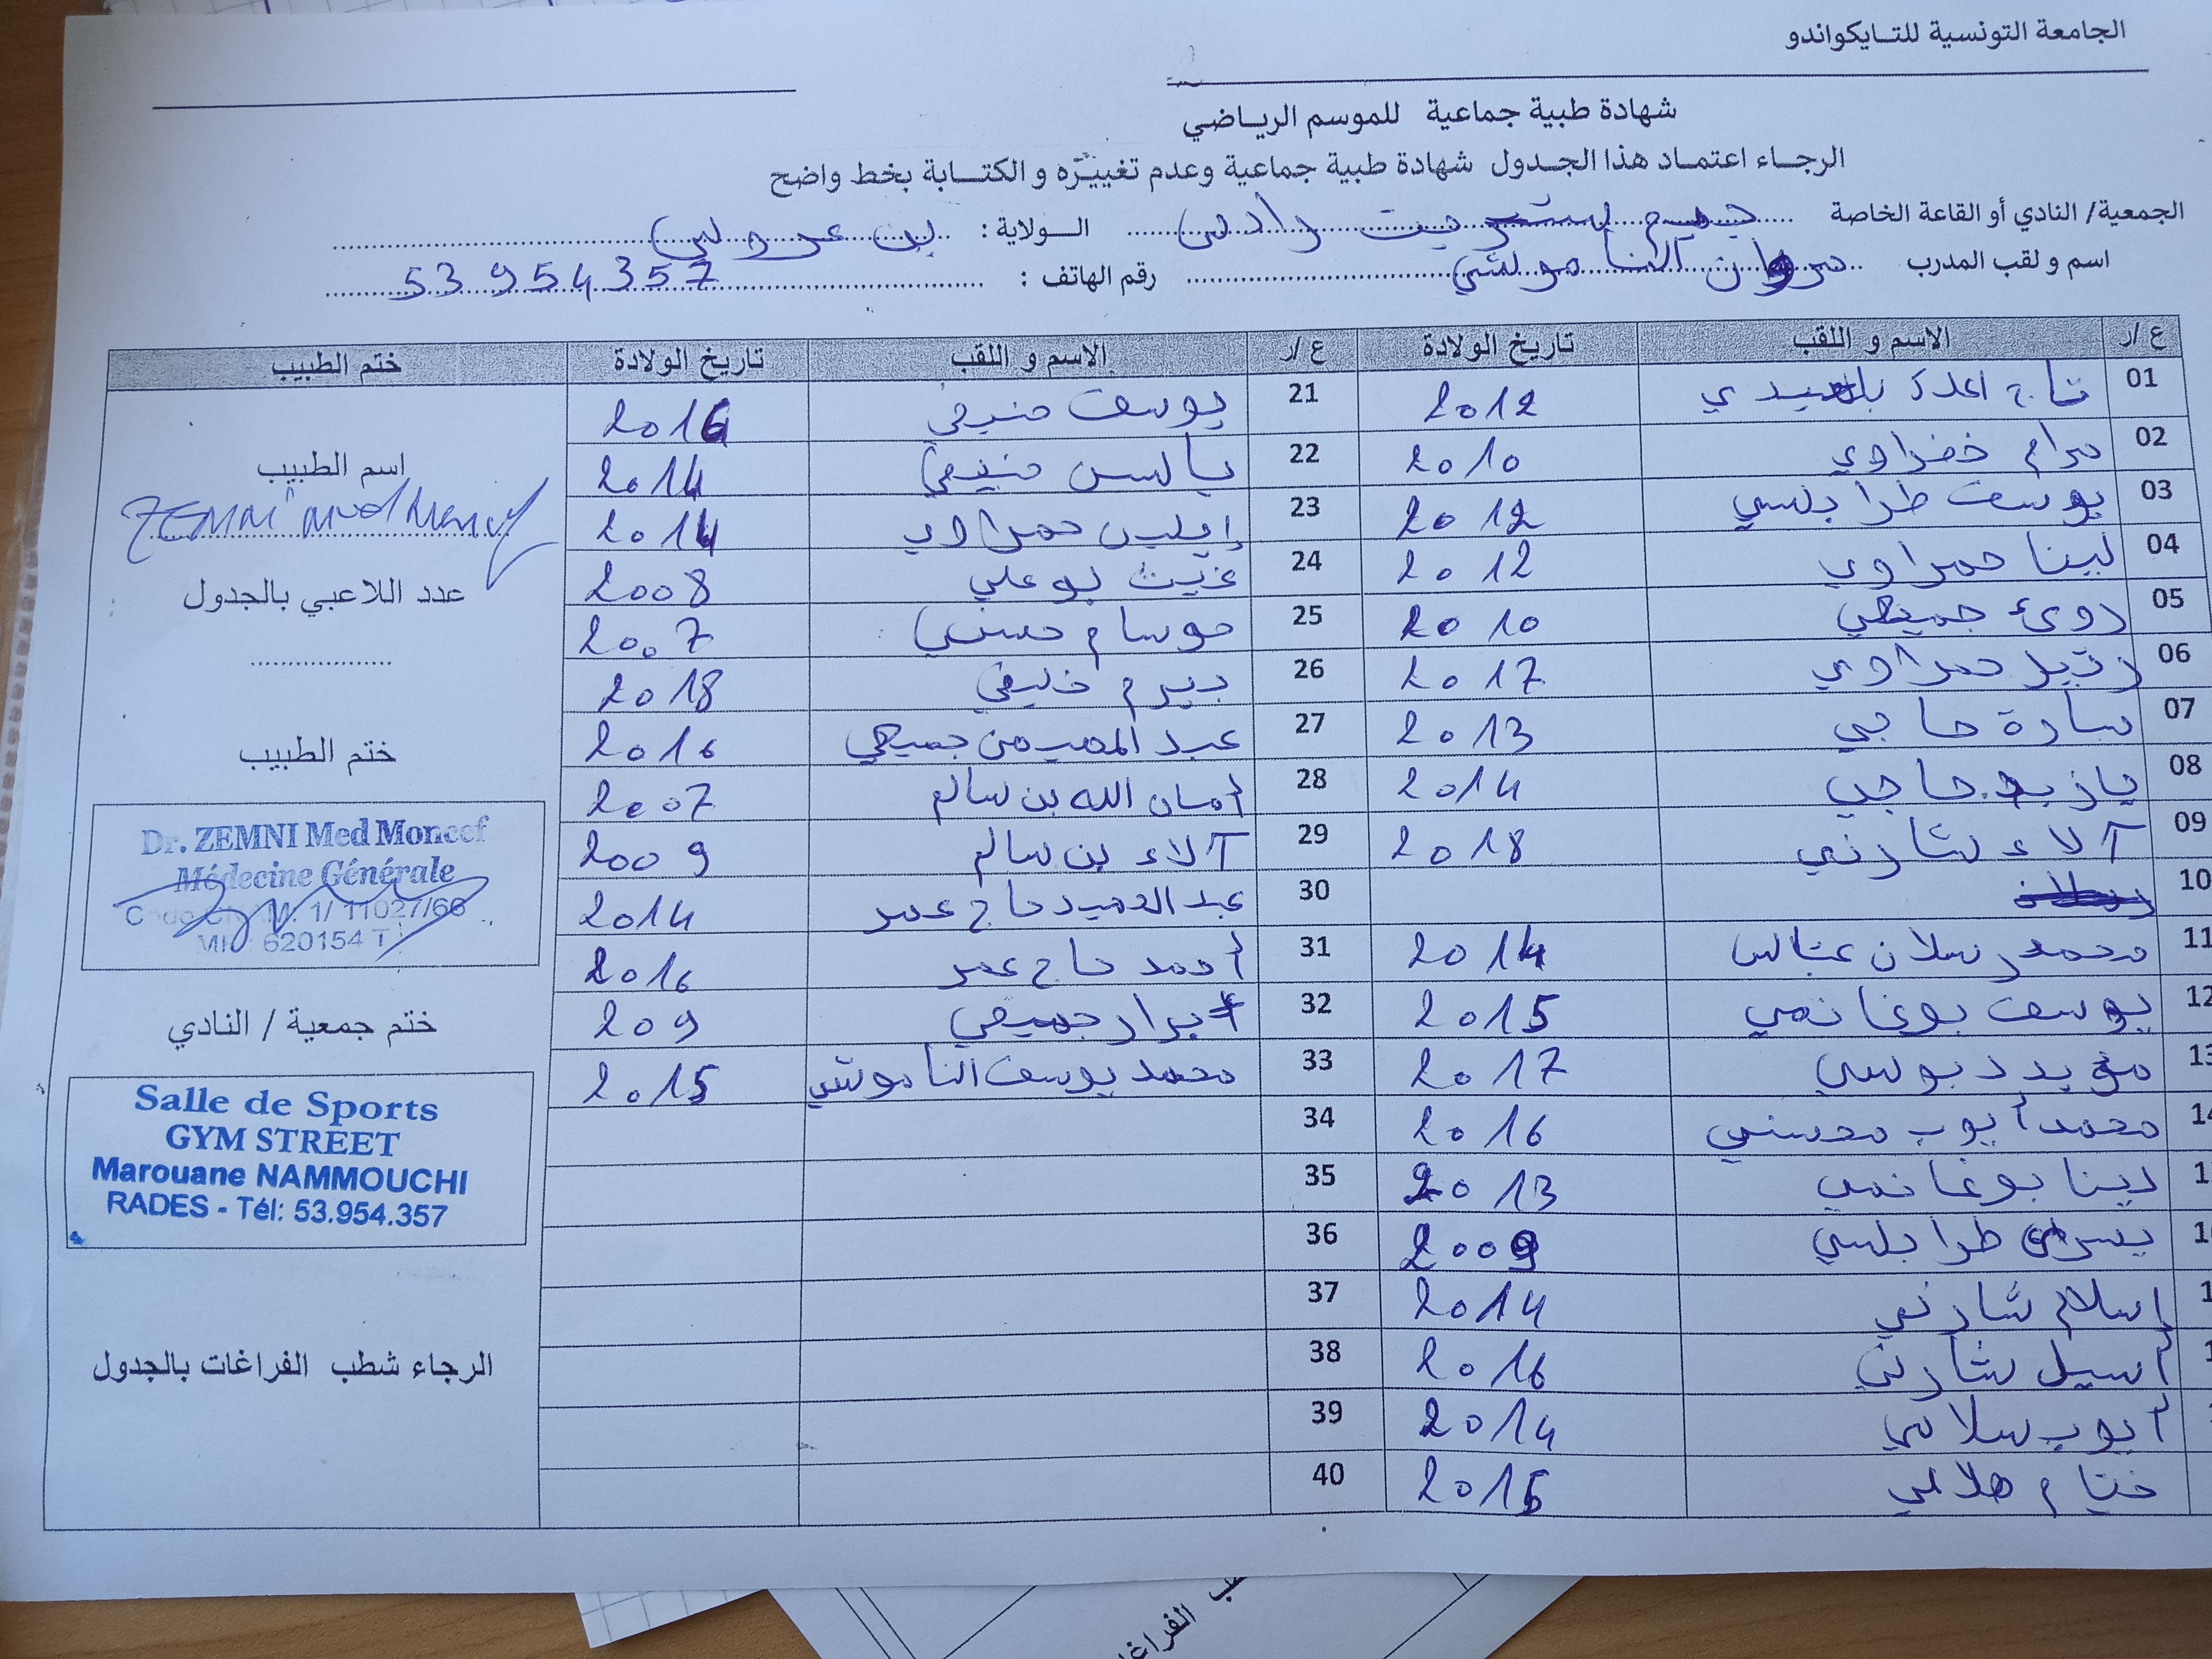 الجامعة التونسية للتـايكواندو
شهادة طبية جماعية للموسم الرياضي
الرجـاء اعتمـاد هذا الجـدول شهادة طبية جماعية وعدم تغييـره و الكتـابة بخط واضح
الجمعية/ النادي أو القاعة الخاصة جيم ستريت رادس الـولاية : بن عروس
اسم و لقب المدرب مروان الناموشي رقم الهاتف : 53 954 357
ع/ر الاسم و اللقب تاريخ الولادة ع/ر الاسم و اللقب تاريخ الولادة ختم الطبيب
01 تاج 2012 21 يوسف منيفي 2016
02 مرام خضراوي 2010 22 ياسين منيفي 2014
03 يوسف طرابلسي 2012 23 إيلين حمراوي 2014
04 لينا حمراوي 2012 24 غيث بوعلي 2008
05 جميعي 2010 25 حسني 2007
06 حمراوي 2017 26 بيرم خليفي 2018
07 سارة حاجي 2013 27 عبد المهيمن جميعي 2016
08 يازيد حاجي 2014 28 أمان الله بن سالم 2007
09 آلاء شارني 2018 29 آلاء بن سالم 2009
10 30 عبد الحميد حاج عمر 2014
11 محمد رسلان عباس 2014 31 أحمد حاج عمر 2016
12 يوسف بوغانمي 2015 32 أبرار جميعي 209
13 مؤيد دبوسي 2017 33 محمد يوسف الناموشي 2015
14 محمد أيوب محسني 2016 34
1 لينا بوغانمي 2013 35
1 يسرى طرابلسي 2009 36
1 إسلام شارني 2014 37
1 أسيل شارني 2016 38
أيوب سلامي 2014 39
ختام هلالي 2015 40
اسم الطبيب
ZEMNI Med Moncef
عدد اللاعبي بالجدول
ختم الطبيب
Dr. ZEMNI Med Moncef
Médecine Générale
1/ 11027/66
620154 T
ختم جمعية / النادي
Salle de Sports
GYM STREET
Marouane NAMMOUCHI
RADES - Tél: 53.954.357
الرجاء شطب الفراغات بالجدول